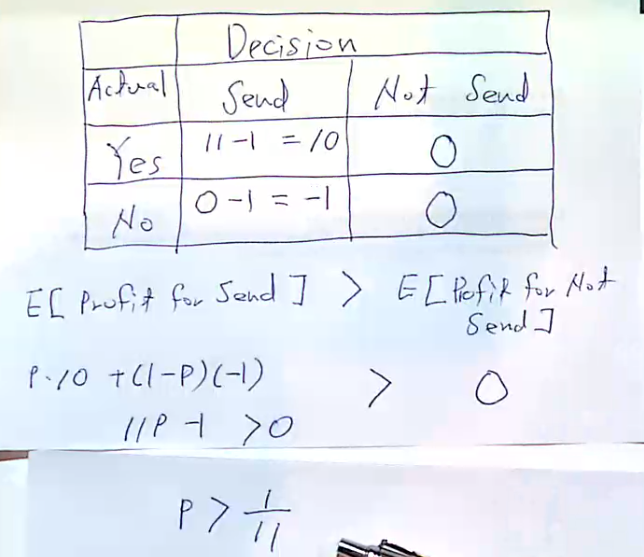 Decision
Actual Send Not Send
Yes 11-1 = 10 0
No 0-1 = -1 0
E[ Profit for Send ] > E[Profit for Not
Send]
P·10 +(1-P)(-1) > 0
11P -1 >0
P > 1/11